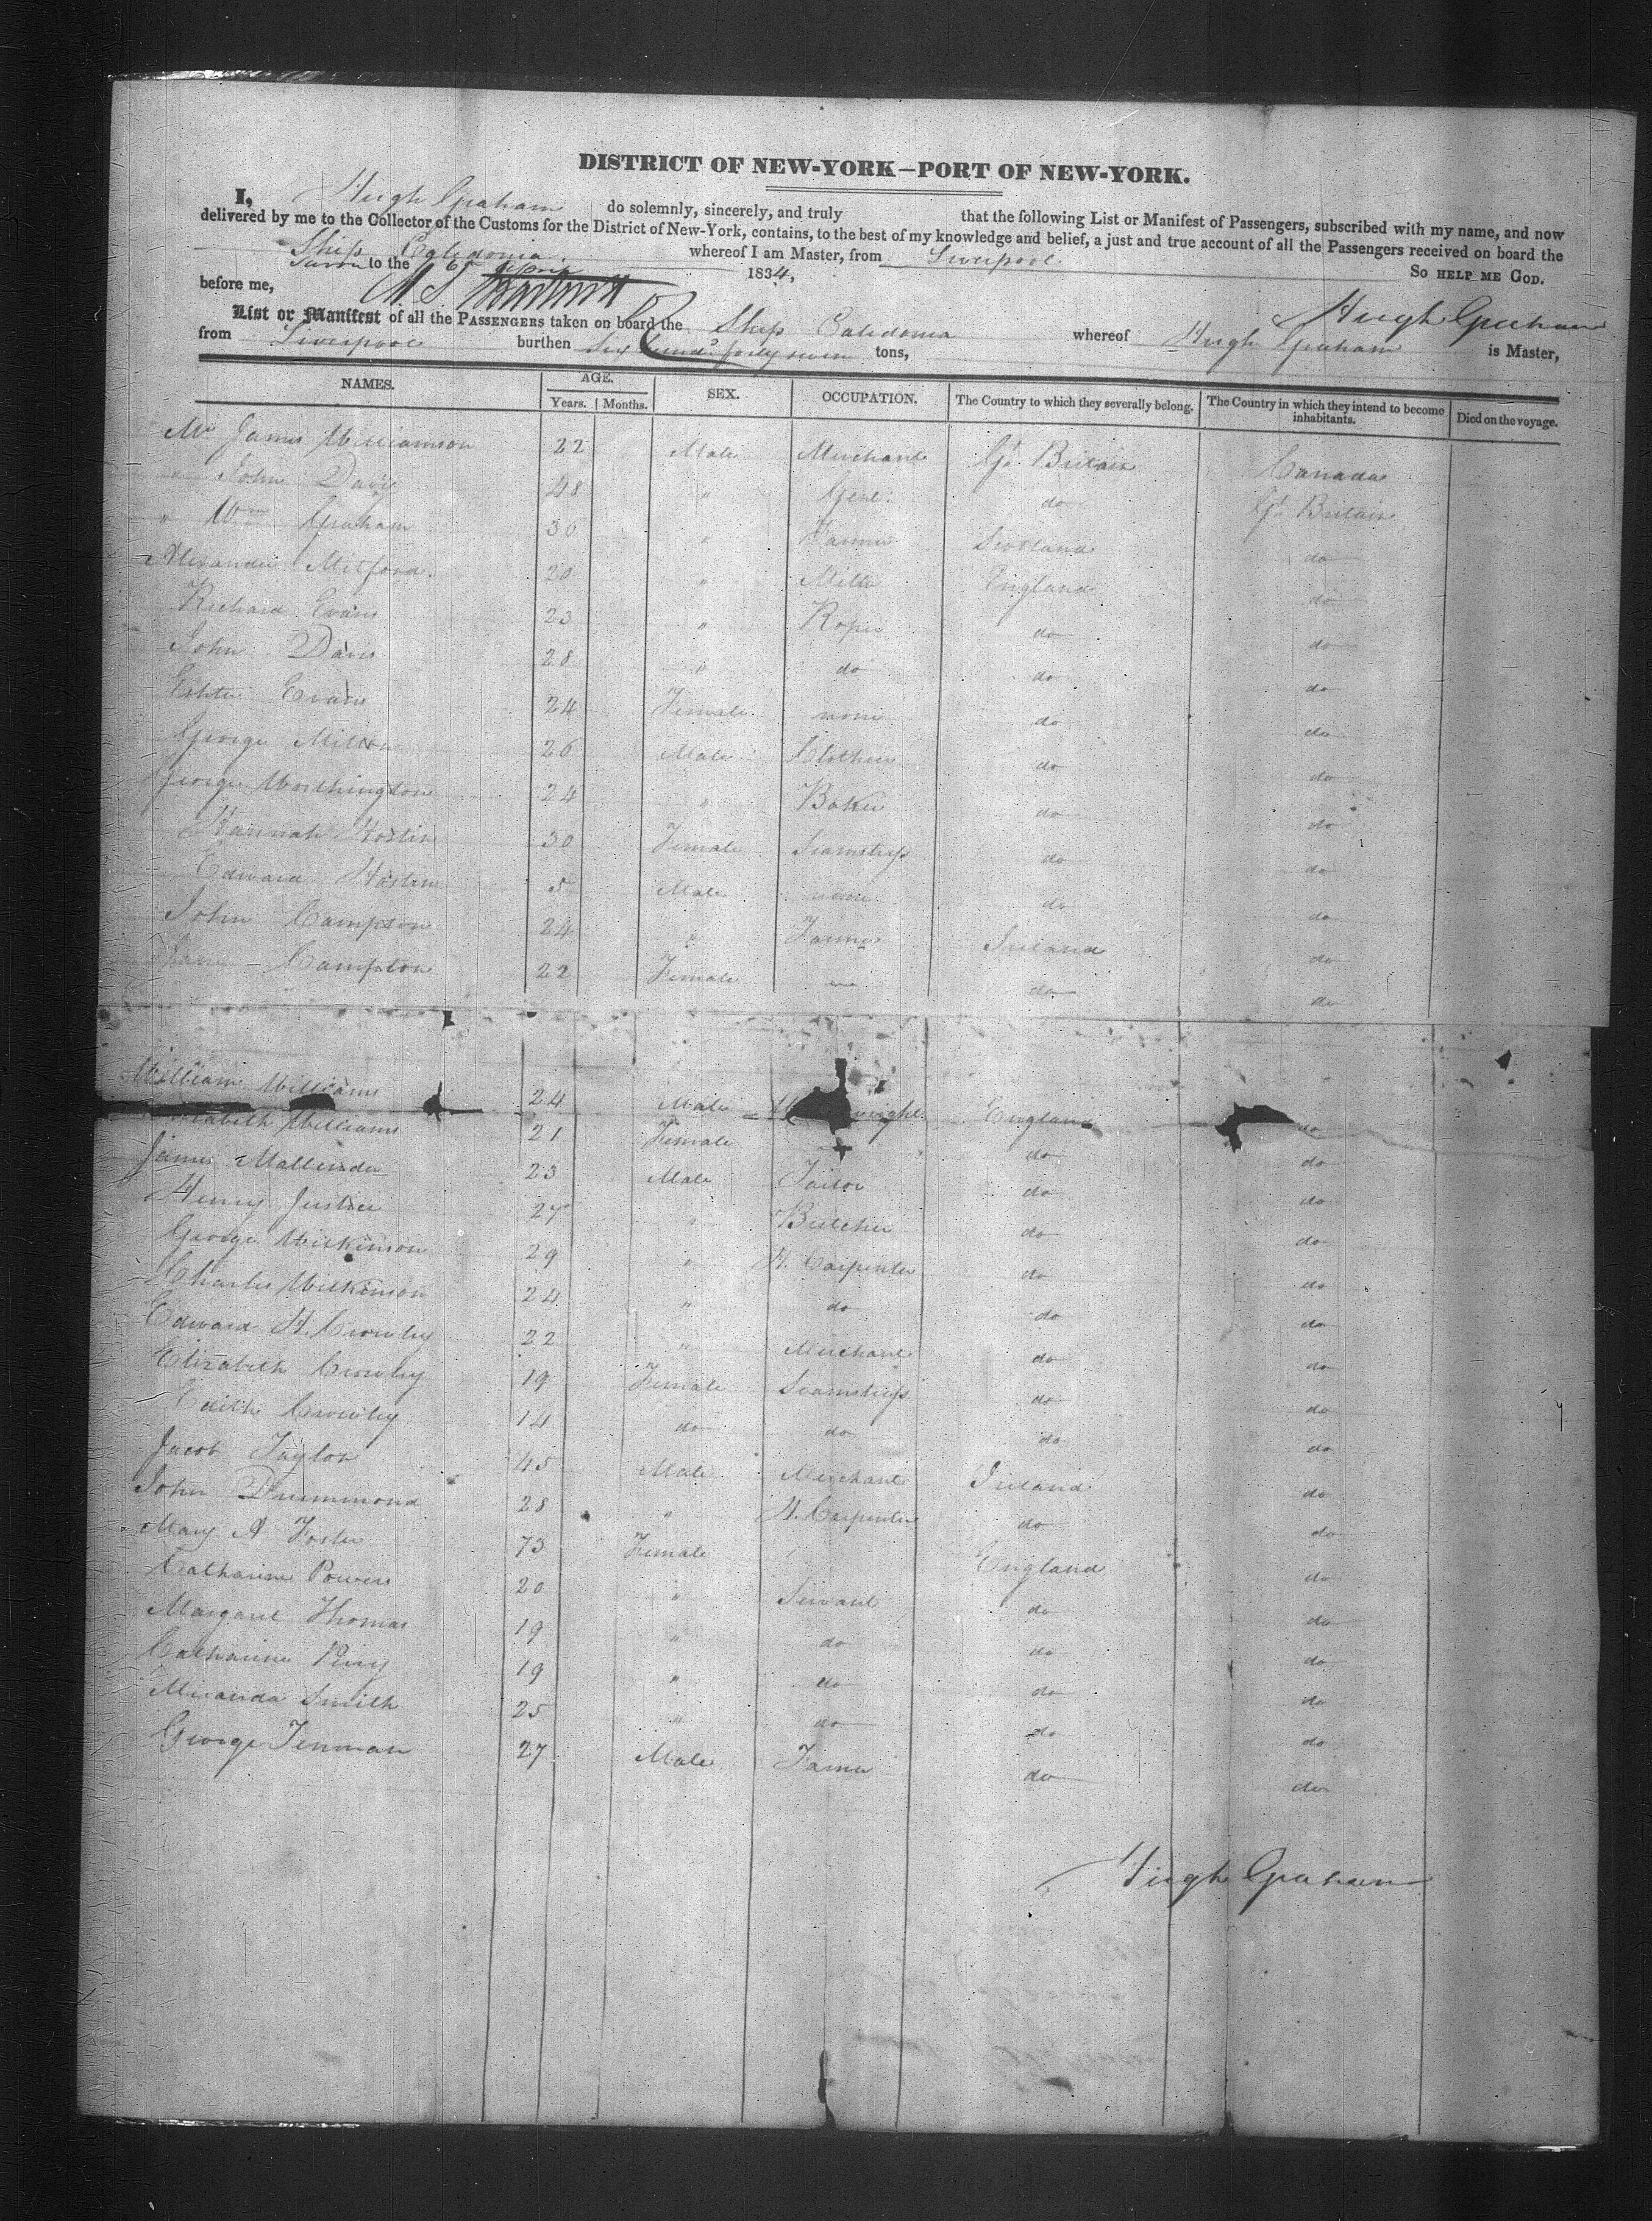 DISTRICT OF NEW-YORK—PORT OF NEW-YORK.
I, Hugh Graham do solemnly, sincerely, and truly that the following List or Manifest of Passengers, subscribed with my name, and now
delivered by me to the Collector of the Customs for the District of New-York, contains, to the best of my knowledge and belief, a just and true account of all the Passengers received on board the
Ship Caledonia whereof I am Master, from Liverpool
to the 1834, So HELP ME GOD.
before me, Hugh Graham
List or Manifest of all the PASSENGERS taken on board the Ship Caledonia whereof Hugh Graham is Master,
from Liverpool burthen Six hundd forty seven tons,
NAMES. AGE. Years. Months. SEX. OCCUPATION. The Country to which they severally belong. The Country in which they intend to become inhabitants. Died on the voyage.
Mr James Williamson 22 Male Merchant Gt. Britain Canada
" John Davy 48 " Gent. do Gt. Britain
" Wm Graham 30 " Farmer Scotland do
Alexander Mitford 20 " Miller England do
Richard Evans 23 " Roper do do
John Davis 28 " do do do
Esther Evans 24 Female none do do
George Milton 26 Male Clothier do do
George Worthington 24 " Baker do do
Hannah Hostin 30 Female Seamstress do do
Edward Hostin 5 Male none do do
John Campton 24 " Farmer Ireland do
Jane Campton 22 Female do do
William Williams 24 Male England do
Williams 21 Female do do
James Mallinder 23 Male Tailor do do
Henry Justice 27 " Butcher do do
George Wilkinson 29 " H. Carpenter do do
Charles Wilkinson 24 " do do do
Edward H. Crowley 22 " Merchant do do
Elizabeth Crowley 19 Female Seamstress do do
Edith Crowley 14 do do do do
Jacob Taylor 45 Male Merchant Ireland do
John Drummond 28 " H. Carpenter do do
Mary A Foster 73 Female England do
Catharine Powers 20 " Servant do do
Margaret Thomas 19 " do do do
Catharine Perry 19 " do do do
Miranda Smith 25 " do do do
George Tenman 27 Male Farmer do do
Hugh Graham